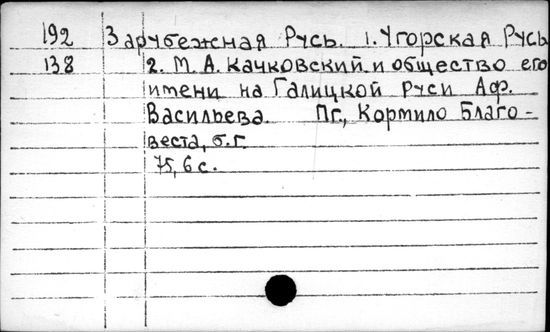 192 Зарубежная Русь. 1. Угорская Русь
138 2. М. А. Качковский и общество его
имени на Галицкой Руси Аф.
Васильева. Пг., Кормило Благо-
веста, б. г.
75, 6 с.